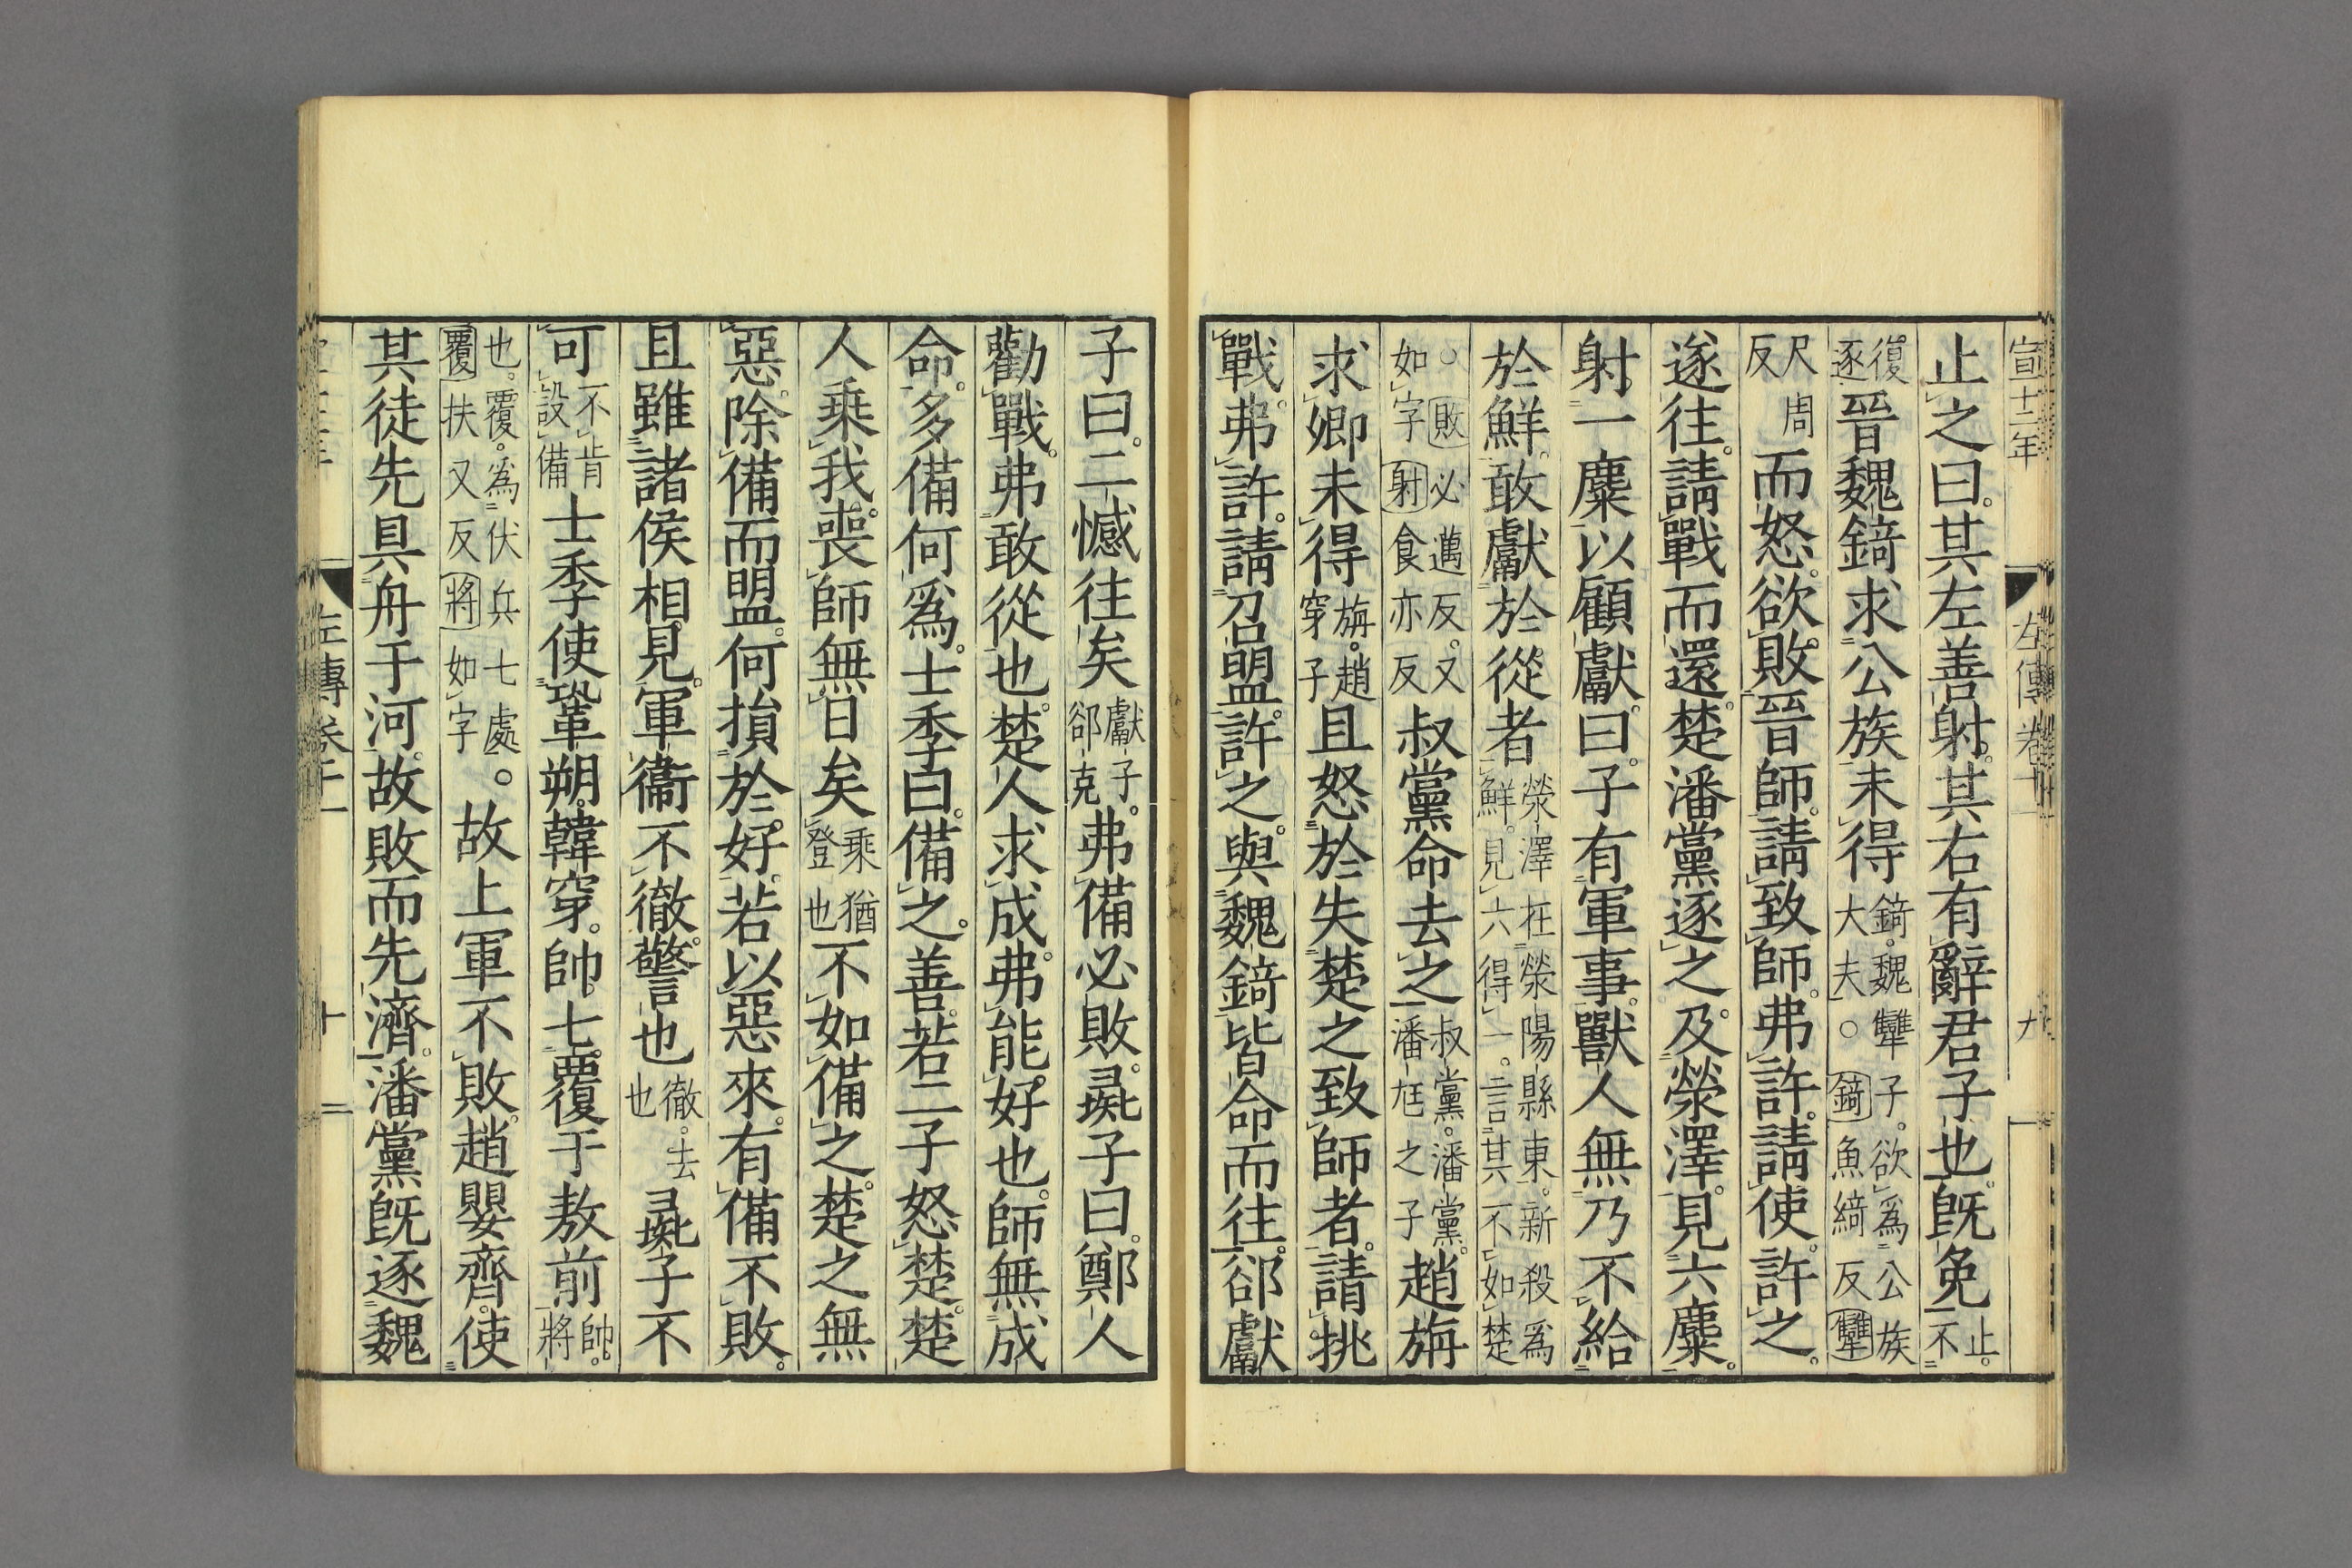 宣十二年 左傳卷十一 九
止之曰其左善射其右有辭君子也既免止不
復逐晉魏錡求公族未得錡魏犨子欲爲公族大夫○錡魚綺反犨
尺周反而怒欲敗晉師請致師弗許請使許之
遂往請戰而還楚潘黨逐之及熒澤見六麋
射一麋以顧獻曰子有軍事獸人無乃不給
於鮮敢獻於從者熒澤在熒陽縣東新殺爲鮮見六得一言其不如楚
○敗必邁反又如字射食亦反叔黨命去之叔黨潘黨潘尫之子趙旃
求卿未得旃趙穿子且怒於失楚之致師者請挑
戰弗許請召盟許之與魏錡皆命而往郤獻
子曰二憾往矣獻子郤克弗備必敗彘子曰鄭人
勸戰弗敢從也楚人求成弗能好也師無成
命多備何爲士季曰備之善若二子怒楚楚
人乘我喪師無日矣乘猶登也不如備之楚之無
惡除備而盟何損於好若以惡來有備不敗
且雖諸侯相見軍衞不徹警也徹去也彘子不
可不肯設備士季使鞏朔韓穿帥七覆于敖前帥將
也覆爲伏兵七處覆扶又反將如字。故上軍不敗趙嬰齊使
其徒先具舟于河故敗而先濟潘黨既逐魏
左傳卷十一 十